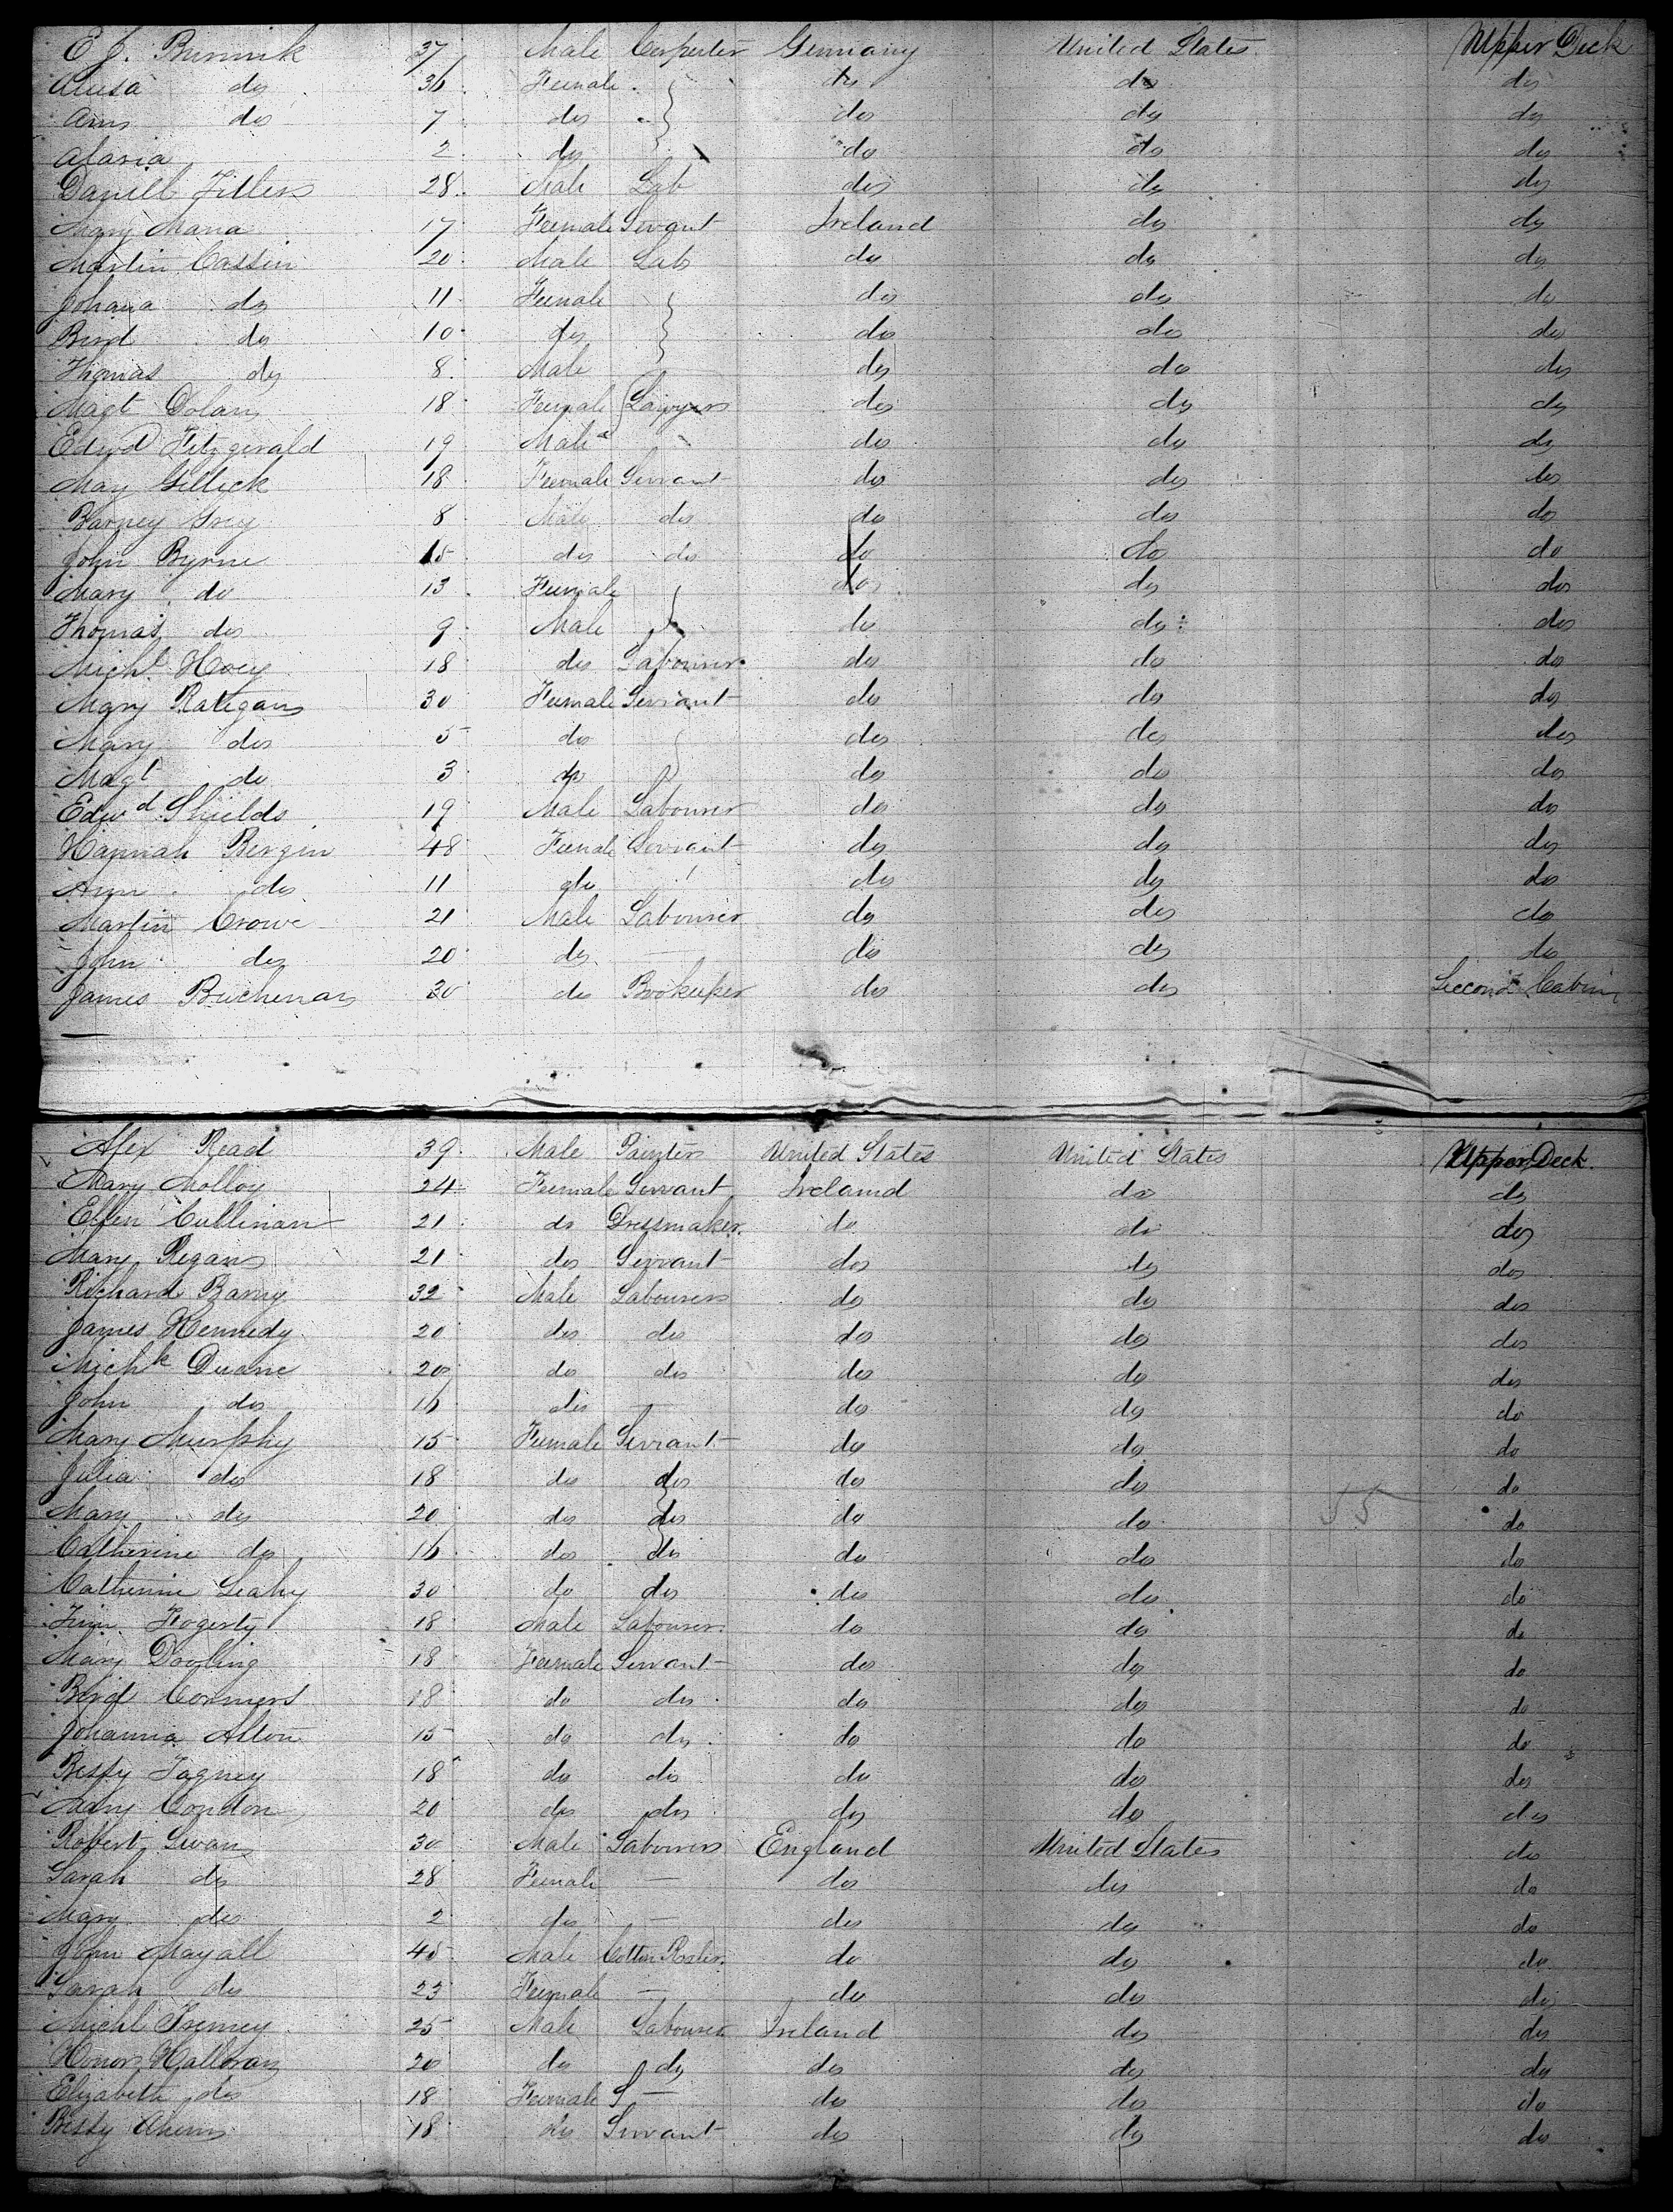 E J. Bunnik 37 Male Carpenter Germany United States Upper Deck
Aluisa do 36 Female do do do
Ann do 7 do do do do
Maria 2 do do do do
Daniell 28 Male Lab do do do
Mary Mana 17 Female Servant Ireland do do
Martin Cassin 20 Male Lab do do do
Johana do 11 Female do do do
Brid do 10 do do do do
Thomas do 8 Male do do do
Magt Dolan 18 Female Lawyers do do do
Edwd Fitzgerald 19 Male do do do
May Gillick 18 Female Servant do do do
Barney Grey 8 Male do do do do
John Byrne 15 do do do do do
Mary do 13 Female do do do
Thomas do 9 Male do do do
Michl Hoey 18 do Labourer do do do
Mary Rategan 30 Female Servant do do do
Mary do 5 do do do do
Magt do 3 do do do do
Edwd Shields 19 Male Labourer do do do
Hannah Bergin 48 Female Servant do do do
Ann do 11 do do do do
Martin Crowe 21 Male Labourer do do do
John do 20 do — do do do
James Buchenan 30 do Bookeeper do do Second Cabin
Alex Read 39 Male Painter United States United States Upper Deck
Mary Molloy 24 Female Servant Ireland do do
Ellen Cullinan 21 do Dressmaker do do do
Mary Regan 21 do Servant do do do
Richard Barry 32 Male Labourers do do do
James Kennedy 20 do do do do do
Michk Duane 20 do do do do do
John do 16 do — do do do
Mary Murphy 15 Female Servant do do do
Julia do 18 do do do do do
Mary do 20 do do do do 55 do
Catherine do 16 do do do do do
Catherine Leahy 30 do do do do do
Tim Fogerty 18 Male Labourer do do do
Mary Dooling 18 Female Servant do do do
Brid Connors 18 do do do do do
Johanna Alton 15 do do do do do
Bessy Fagney 18 do do do do do
Mary Condon 20 do do do do do
Robert Swan 30 Male Labourers England United States do
Sarah do 28 Female — do do do
Mary do 2 do — do do do
John Mayall 45 Male Cotton do do do
Sarah do 23 Female — do do do
Michl 25 Male Labourer Ireland do do
Honor Halloran 20 do do do do do
Elizabeth do 18 Female — do do do
Bessy Ahern 18 do Servant do do do